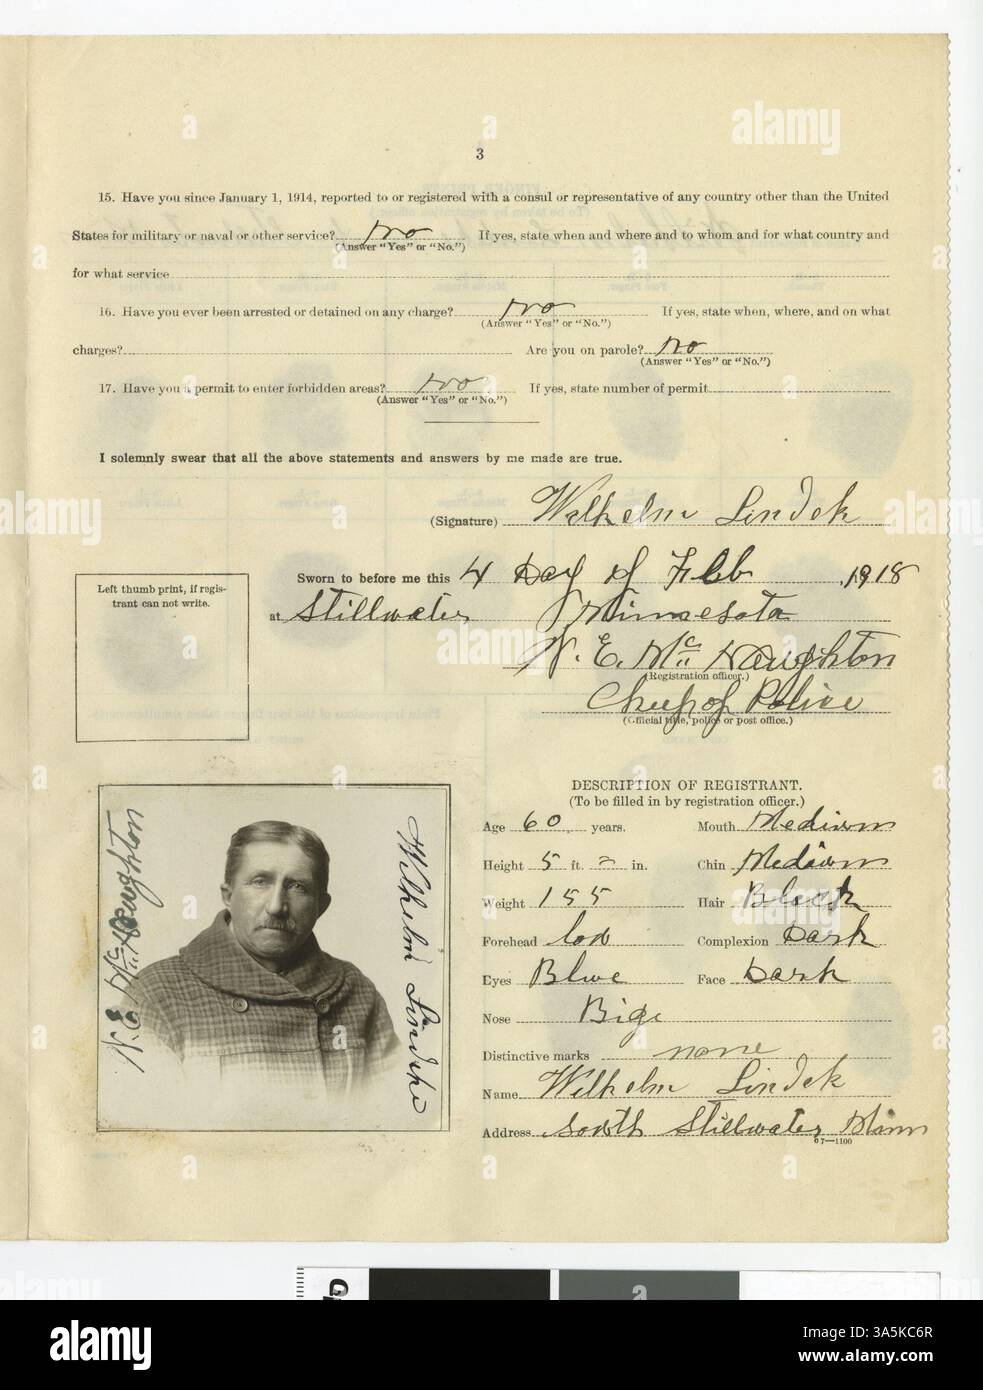 3
15. Have you since January 1, 1914, reported to or registered with a consul or representative of any country other than the United
States for military or naval or other service? no If yes, state when and where and to whom and for what country and
(Answer "Yes" or "No.")
for what service
16. Have you ever been arrested or detained on any charge? no If yes, state when, where, and on what
(Answer "Yes" or "No.")
charges? Are you on parole? no
(Answer "Yes" or "No.")
17. Have you a permit to enter forbidden areas? no If yes, state number of permit
(Answer "Yes" or "No.")
I solemnly swear that all the above statements and answers by me made are true.
(Signature) Wilhelm Lindek
Sworn to before me this 4 Day of Feb, 1918
at Stillwater Minnesota
N. E. McNaughton
(Registration officer.)
Chief of Police
(Official title, police or post office.)
Left thumb print, if regis-
trant can not write.
N. E. McNaughton
Wilhelm Lindeke
DESCRIPTION OF REGISTRANT.
(To be filled in by registration officer.)
Age 60 years. Mouth Medium
Height 5 ft. 7 in. Chin Medium
Weight 155 Hair Black
Forehead low Complexion Dark
Eyes Blue Face Dark
Nose Bige
Distinctive marks none
Name Wilhelm Lindek
Address South Stillwater Minn
67—1100
alamy
alamy
Image ID: A35KC6R
www.alamy.com